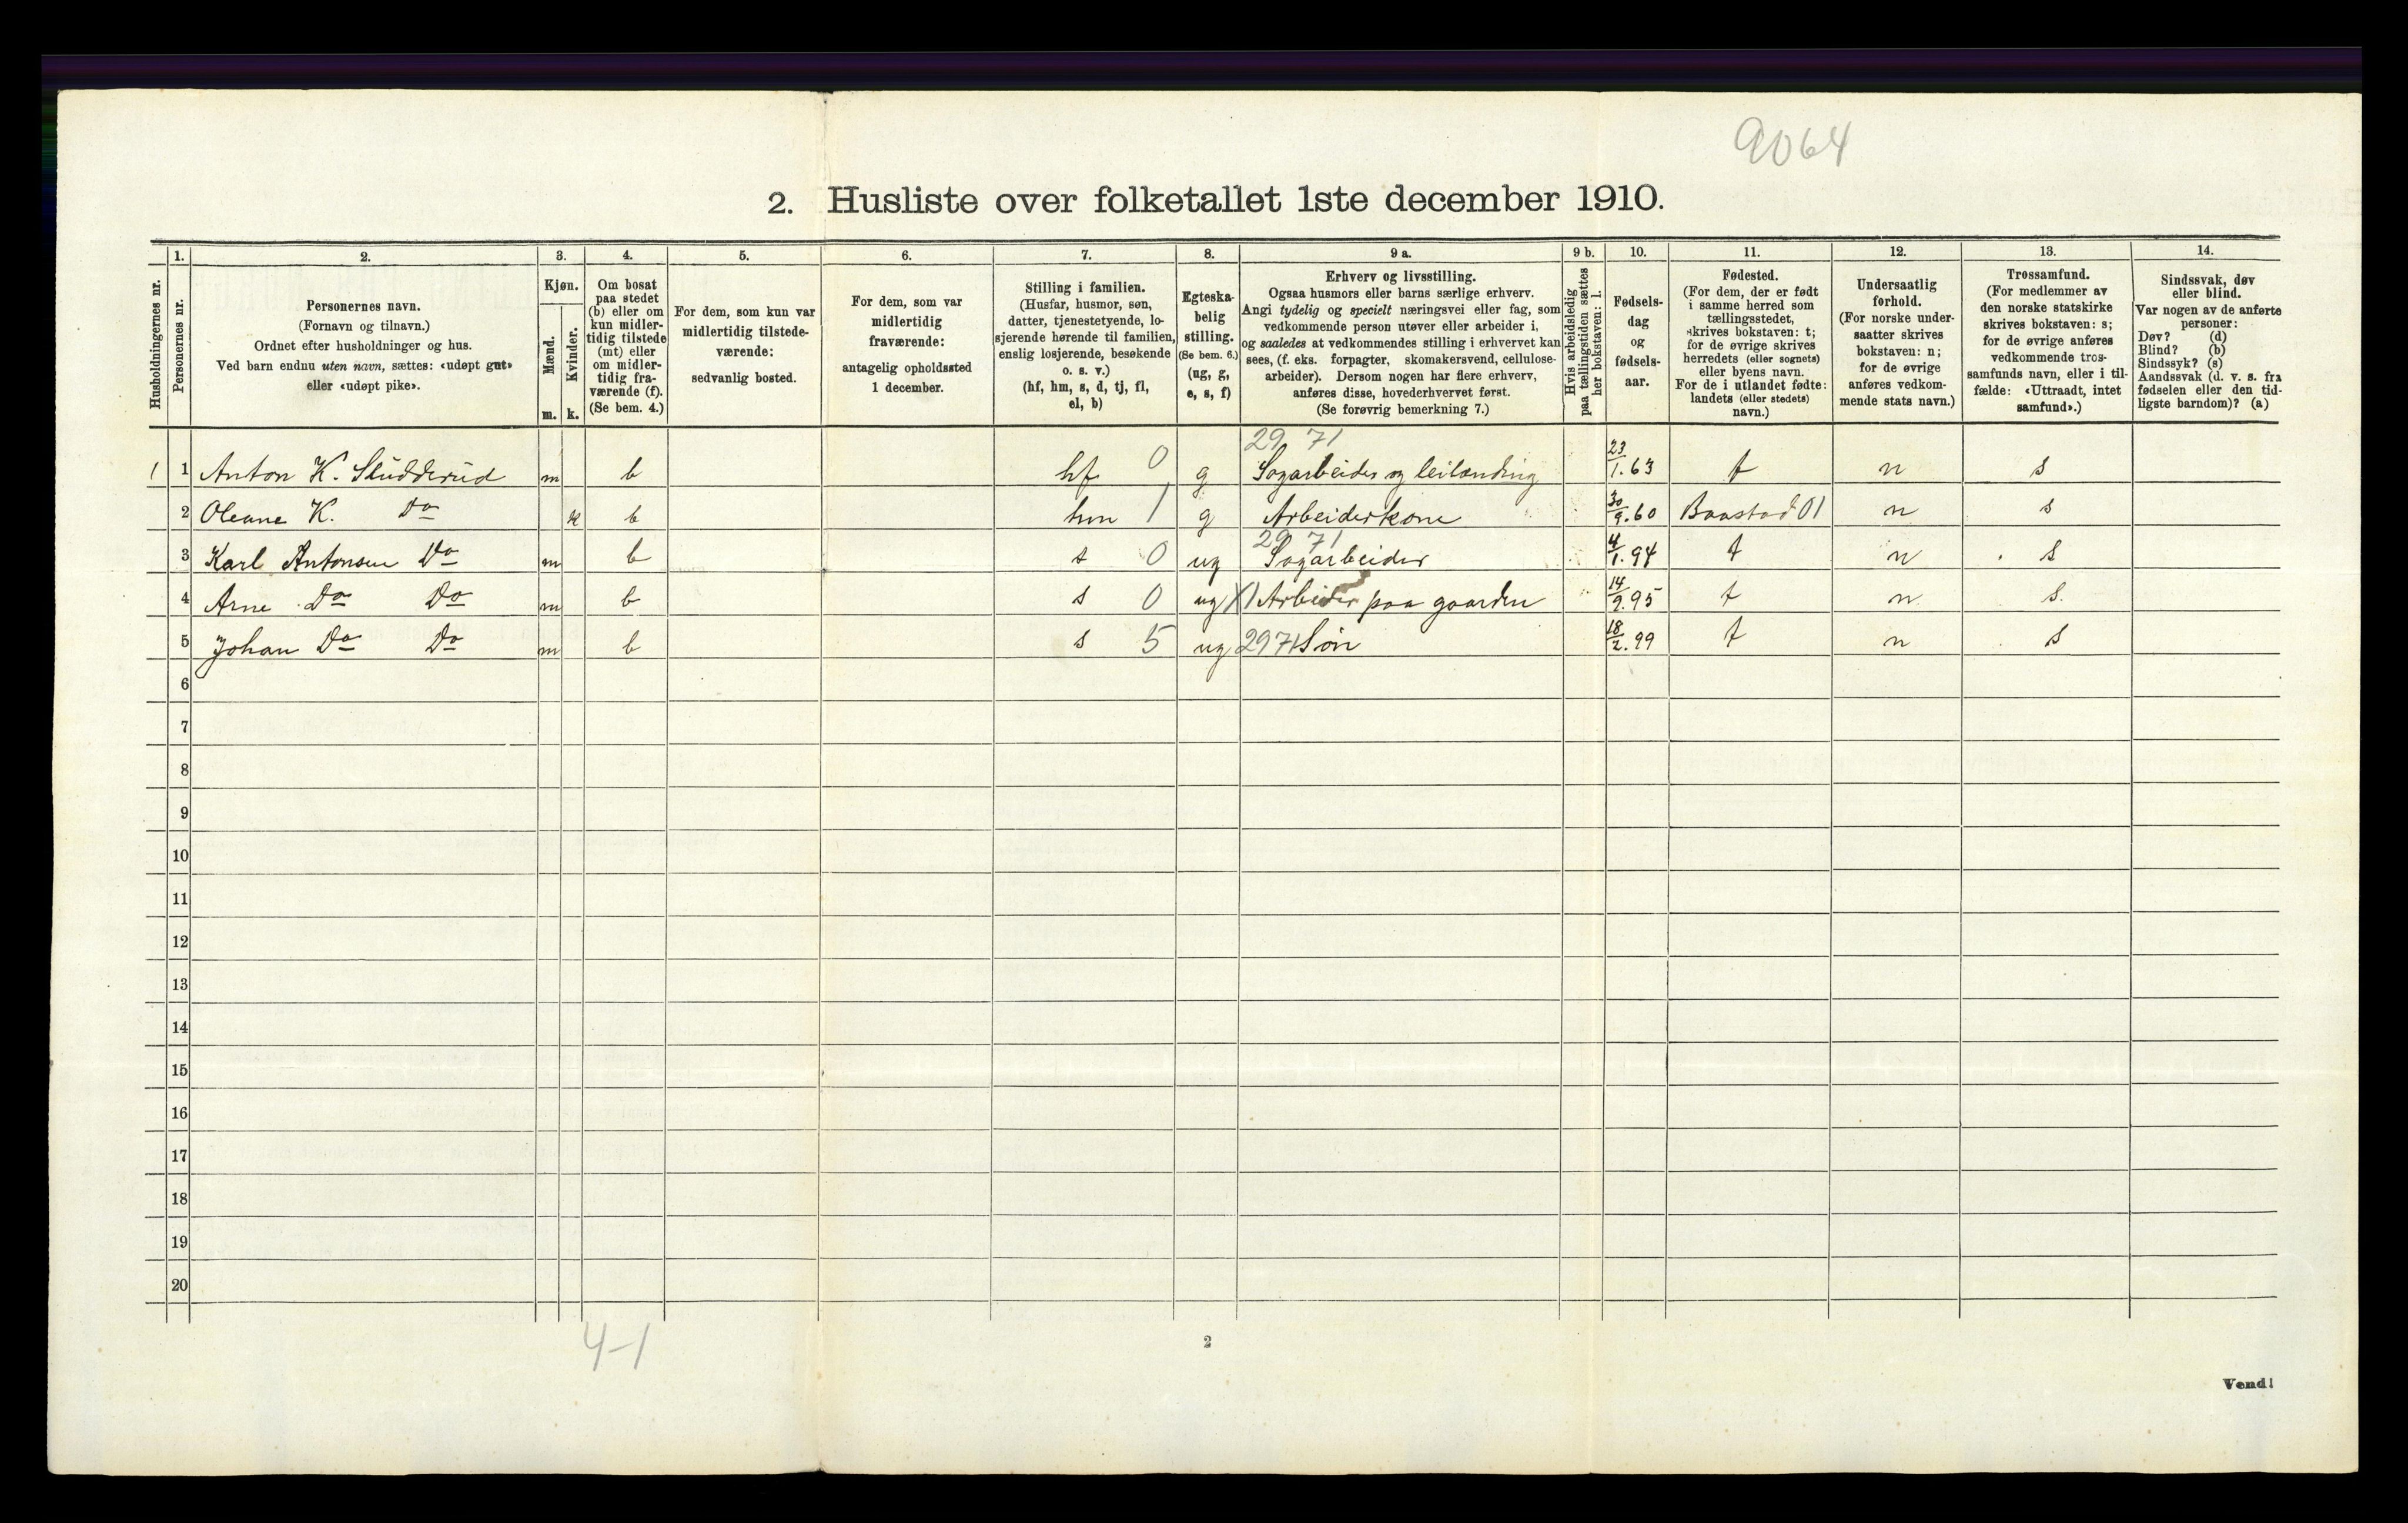 9064
2. Husliste over folketallet 1ste december 1910.
Husholdningernes nr.
1.
Personernes nr.
2.
Personernes navn.
(Fornavn og tilnavn.)
Ordnet efter husholdninger og hus.
Ved barn endnu uten navn, sættes: «udøpt gut»
eller «udøpt pike».
3.
Kjøn.
Mænd.
Kvinder.
m. k.
4.
Om bosat
paa stedet
(b) eller om
kun midler-
tidig tilstede
(mt) eller
om midler-
tidig fra-
værende (f).
(Se bem. 4.)
5.
For dem, som kun var
midlertidig tilstede-
værende:
sedvanlig bosted.
6.
For dem, som var
midlertidig
fraværende:
antagelig opholdssted
1 december.
7.
Stilling i familien.
(Husfar, husmor, søn,
datter, tjenestetyende, lo-
sjerende hørende til familien,
enslig losjerende, besøkende
o. s. v.)
(hf, hm, s, d, tj, fl,
el, b)
8.
Egteska-
belig
stilling.
(Se bem. 6.)
(ug, g,
e, s, f)
9 a.
Erhverv og livsstilling.
Ogsaa husmors eller barns særlige erhverv.
Angi tydelig og specielt næringsvei eller fag, som
vedkommende person utøver eller arbeider i,
og saaledes at vedkommendes stilling i erhvervet kan
sees, (f. eks. forpagter, skomakersvend, cellulose-
arbeider). Dersom nogen har flere erhverv,
anføres disse, hovederhvervet først.
(Se forøvrig bemerkning 7.)
9 b.
Hvis arbeidsledig
paa tællingstiden sættes
her bokstaven: l.
10.
Fødsels-
dag
og
fødsels-
aar.
11.
Fødested.
(For dem, der er født
i samme herred som
tællingsstedet,
skrives bokstaven: t;
for de øvrige skrives
herredets (eller sognets)
eller byens navn.
For de i utlandet fødte:
landets (eller stedets)
navn.)
12.
Undersaatlig
forhold.
(For norske under-
saatter skrives
bokstaven: n;
for de øvrige
anføres vedkom-
mende stats navn.)
13.
Trossamfund.
(For medlemmer av
den norske statskirke
skrives bokstaven: s;
for de øvrige anføres
vedkommende tros-
samfunds navn, eller i til-
fælde: «Uttraadt, intet
samfund».)
14.
Sindssvak, døv
eller blind.
Var nogen av de anførte
personer:
Døv? (d)
Blind? (b)
Sindssyk? (s)
Aandssvak (d. v. s. fra
fødselen eller den tid-
ligste barndom)? (a)
29 71
1 1 Anton K. Sludderud m b hf 0 g Sagarbeider og leilænding 23/1.63 t n s
2 Oleane K. Do k b hm 1 g Arbeiderkone 30/9.60 Baastad 01 n s
29 71
3 Karl Antonsen Do m b s 0 ug Sagarbeider 4/1.94 t n s
4 Arne Do Do m b s 0 ug X1 Arbeider paa gaarden 14/9.95 t n s
5 Johan Do Do m b s 5 ug 2971 Søn 18/2.99 t n s
6
7
8
9
10
11
12
13
14
15
16
17
18
19
20
4-1
2
Vend!